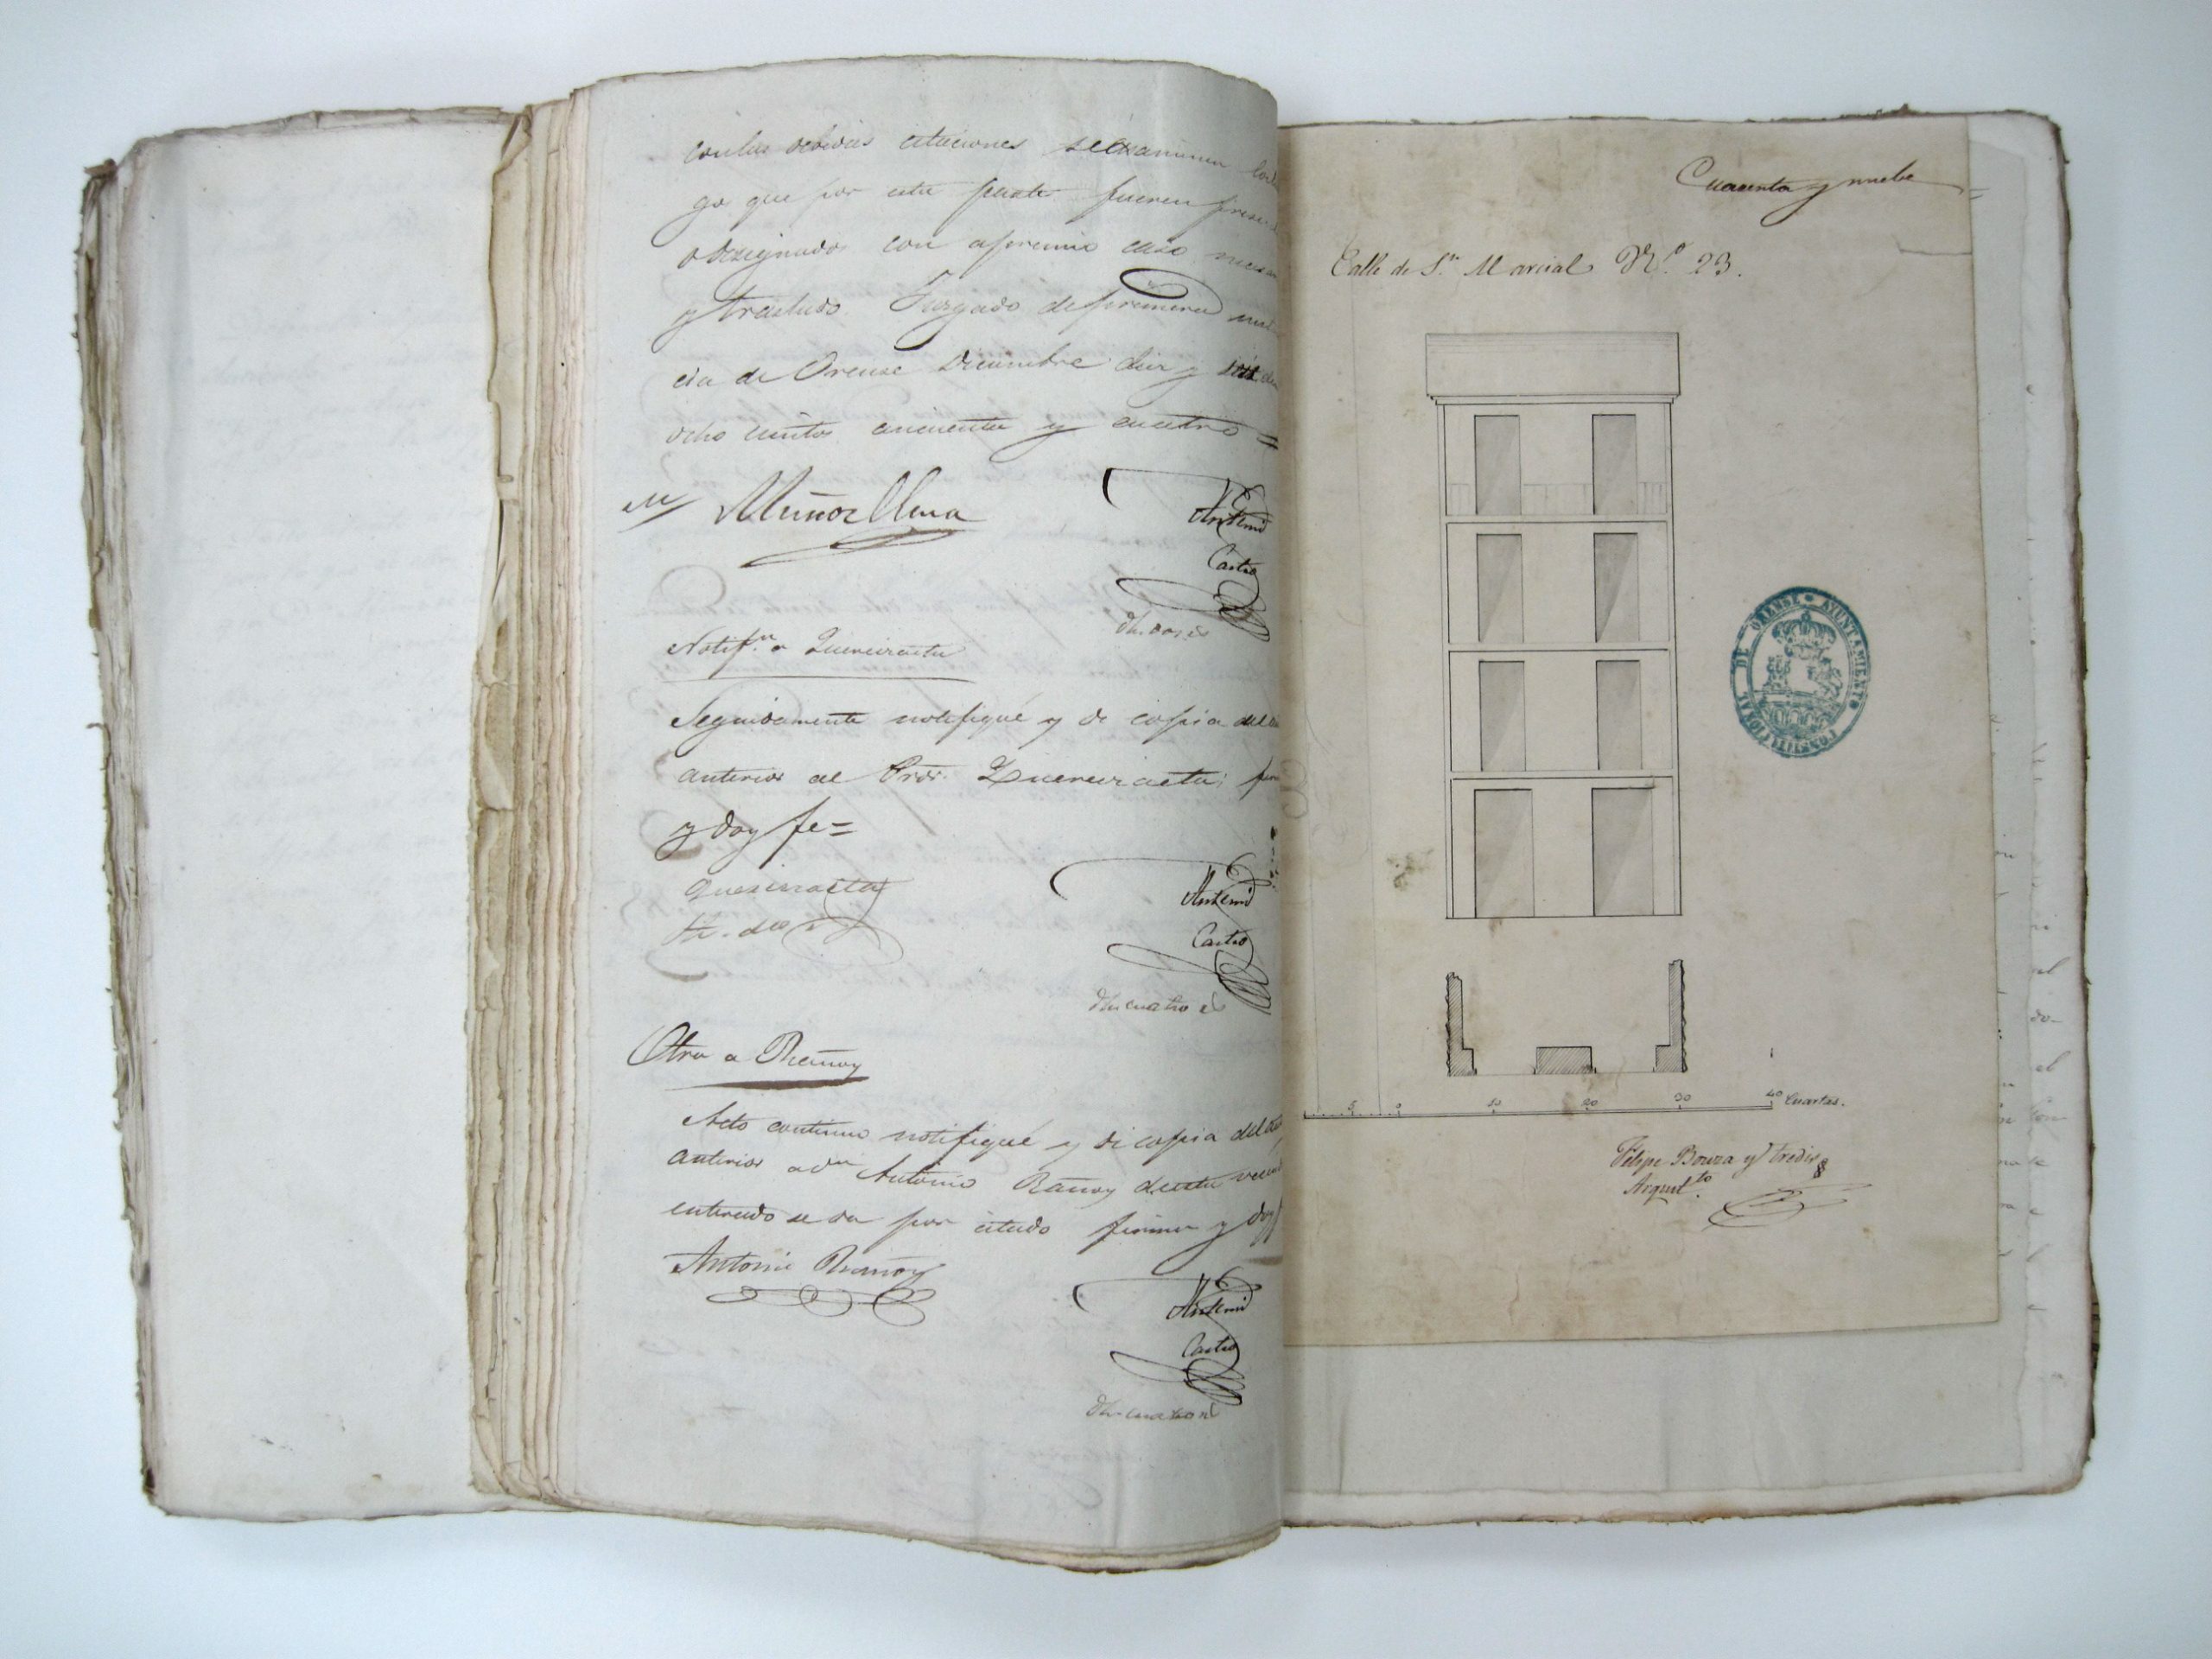 con las debidas citaciones se examinen
go que por esta parte fueren
o designados con apremio caso
y traslado. Juzgado de primera
cia de Orense Diciembre diez y
ocho cientos cincuenta y cuatro =
Muñoz
Antemi
Castro
Notif.n a
Seguidamente notifiqué y di copia del
anterior al Pror.
y doy fe =
Antemi
Castro
dhi cuatro
Otra a Rañoy
Acto continuo notifiqué y di copia del
anterior a dn Antonio Rañoy de esta
enterado se da por citado firma y doy
Antonio Rañoy
Antemi
Castro
Cuarenta y nuebe
Calle de S.n Marcial N.o 23.
AYUNTAMIENTO CONSTITUCIONAL DE ORENSE
5 0 10 20 30 40 Cuartas.
Felipe Bouza y Trediz
Arquit.to